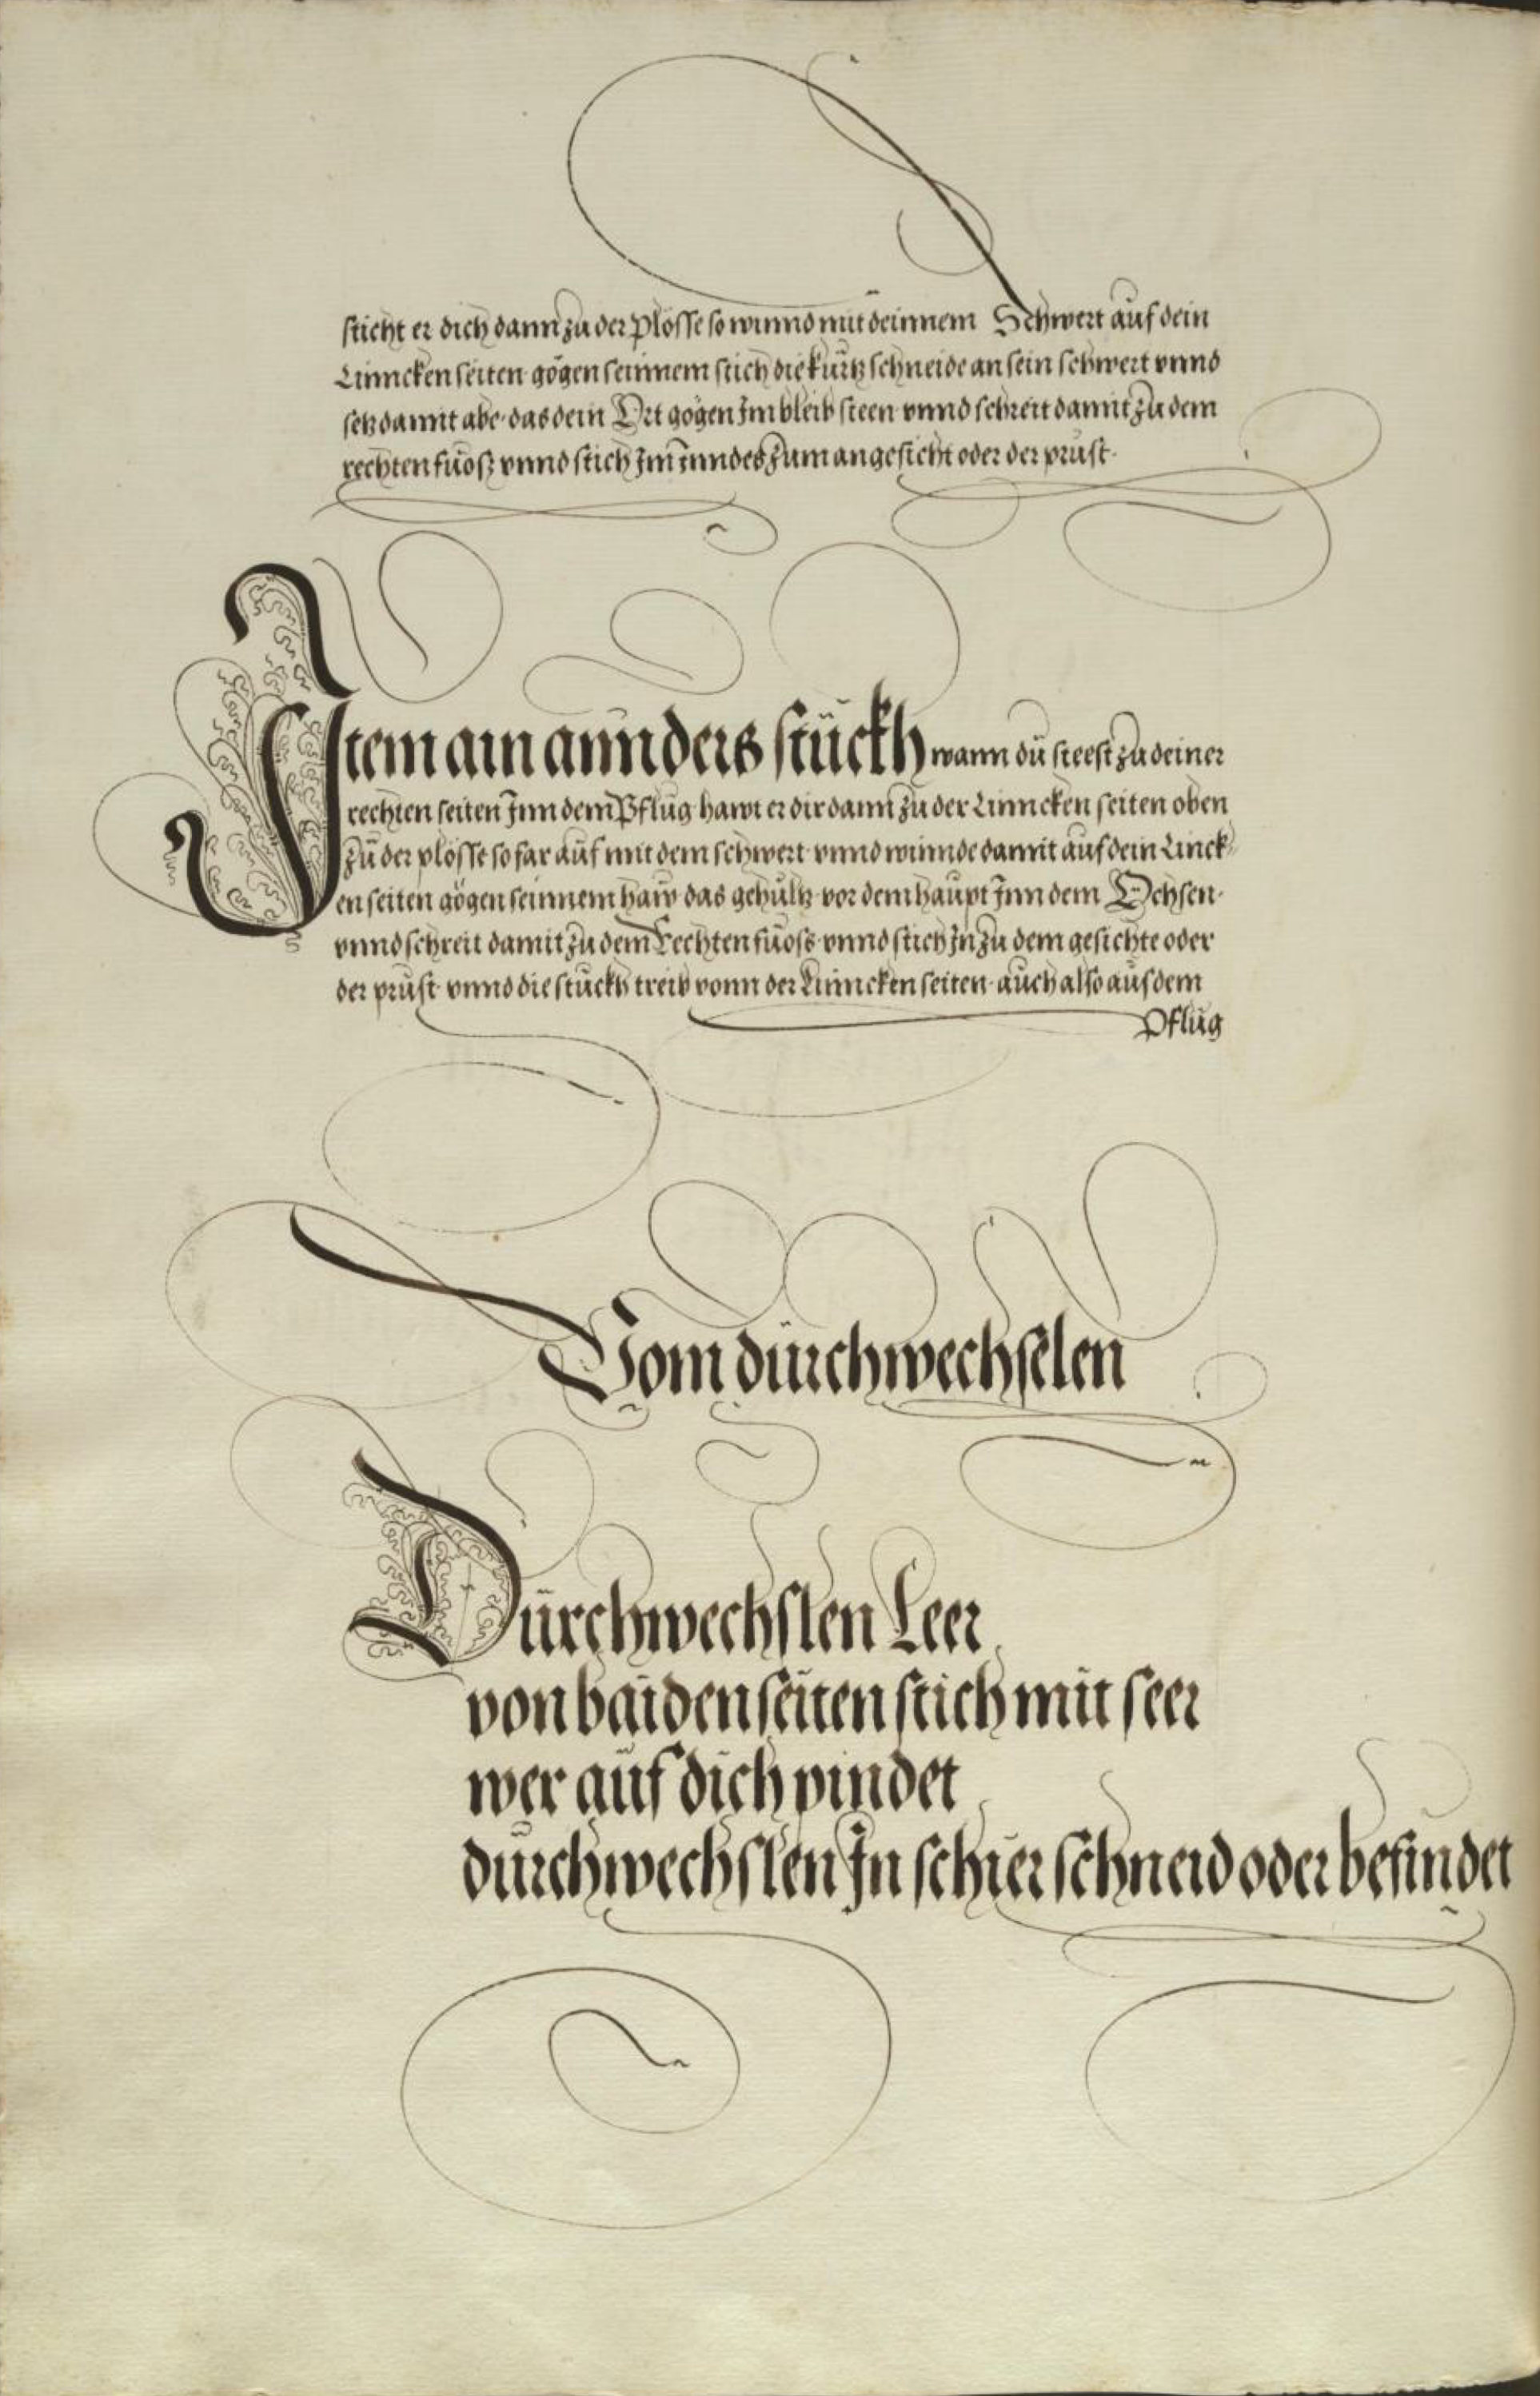 sticht er dich dann zu der plösse so winnd mit deinnem Schwert auf dein
Linncken seiten gögen seinnem stich die kurtz schneide an sein schwert vnnd
setz damit abe· das dein Ort gögen Im bleib steen vnnd schreit damit zu dem
rechten fuosz vnnd stich Im Inndes zum angesicht oder der prust·
Item ain annders stückh wann dü steest zu deiner
rechten seiten Inn dem Pflug hawt er dir dann zu der Linncken seiten oben
zü der plösse so far auf mit dem schwert· vnnd winnde damit auf dein Linck
en seiten gögen seinnem haw· das gehültz· vor dem haupt Inn dem Ochsen·
vnnd schreit damit zu dem Rechten fuoss· vnnd stich In zu dem gesichte oder
der prust· vnnd die stuckh treib vonn der Linncken seiten· auch also aus dem
Pflug
Vom dürchwechselen
Dürchwechslen Leer
von baiden seiten stich mit seer
wer auf dich pindet
durchwechslen In schier schneid oder befindet